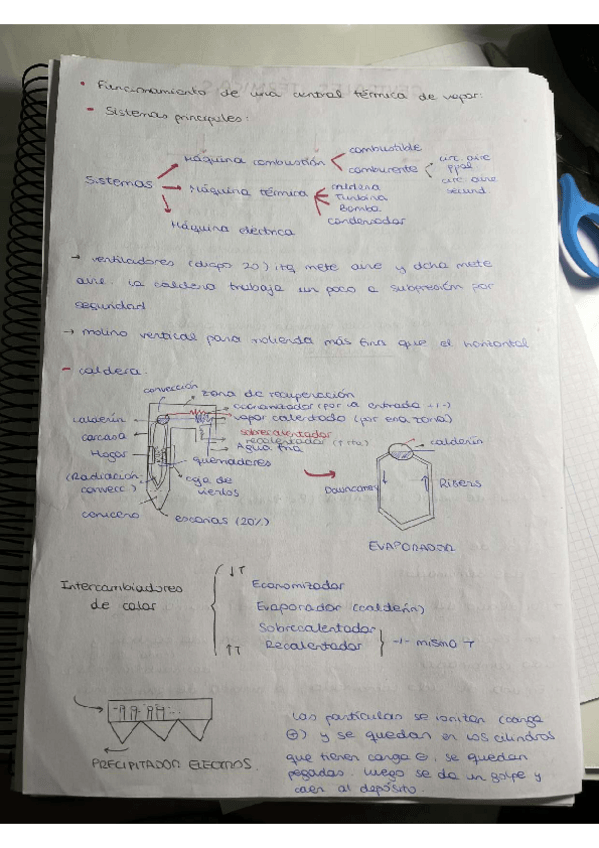 • Funcionamiento de una central térmica de vapor:
- Sistemas principales:
Sistemas
Máquina combustión
combustible
comburente
circ. aire
ppal
circ. aire
secund
Máquina térmica
caldera
Turbina
Bomba
condensador
Máquina eléctrica
→ ventiladores (diapo 20) izq mete aire y dcha mete
aire. La caldera trabaja un poco a subpresión por
seguridad.
→ molino vertical para molienda más fina que el horizontal
- caldera:
convección
zona de recuperación
economizador (por la entrada -|-)
vapor calentado (por esa zona)
sobrecalentador
recalentador
Agua fría
calderín
carcasa
Hogar
quemadores
(Radiación,
convecc.)
caja de
vientos
cenicero
escorias (20%)
calderín
Downcomer
Risers
EVAPORADOR
Intercambiadores
de calor
↓T
↑T
Economizador
Evaporador (calderín)
Sobrecalentador
Recalentador
-|- mismo T
PRECIPITADOR ELECTROS.
Las partículas se ionizan (carga
⊕) y se quedan en los cilindros
que tienen carga ⊖, se quedan
pegadas. Luego se da un golpe y
caen al depósito.